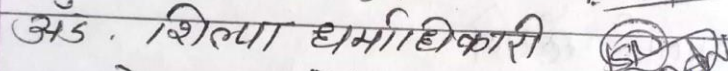 अॅड. शिल्पा धर्माधिकारी